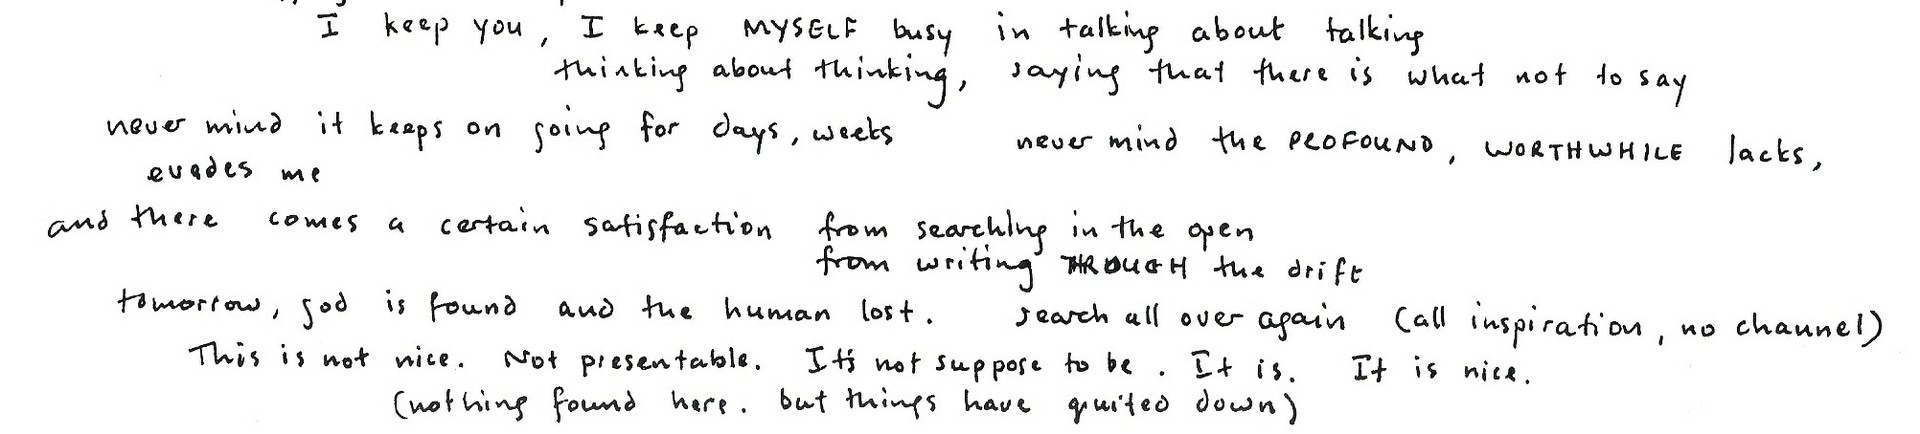 I keep you, I keep MYSELF busy in talking about talking
thinking about thinking, saying that there is what not to say
never mind it keeps on going for days, weeks never mind the PROFOUND, WORTHWHILE lacks,
evades me
and there comes a certain satisfaction from searching in the open
from writing THROUGH the drift
tomorrow, god is found and the human lost. search all over again (all inspiration, no channel)
This is not nice. Not presentable. It's not suppose to be. It is. It is nice.
(nothing found here. but things have quited down)